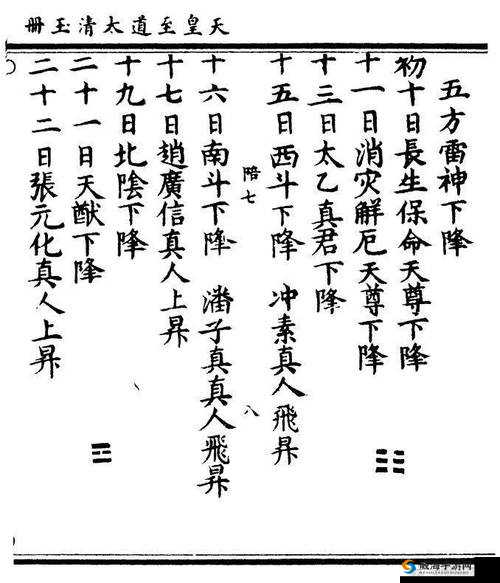 天皇至道太清玉冊
五方雷神下降
初十日長生保命天尊下降
十一日消灾解厄天尊下降
十三日太乙真君下降
十五日西斗下降 冲素真人飛昇
陪七 八
十六日南斗下降 潘子真真人飛昇
十七日趙廣信真人上昇
十九日北陰下降
二十一日天猷下降
二十二日張元化真人上昇
威海手游网